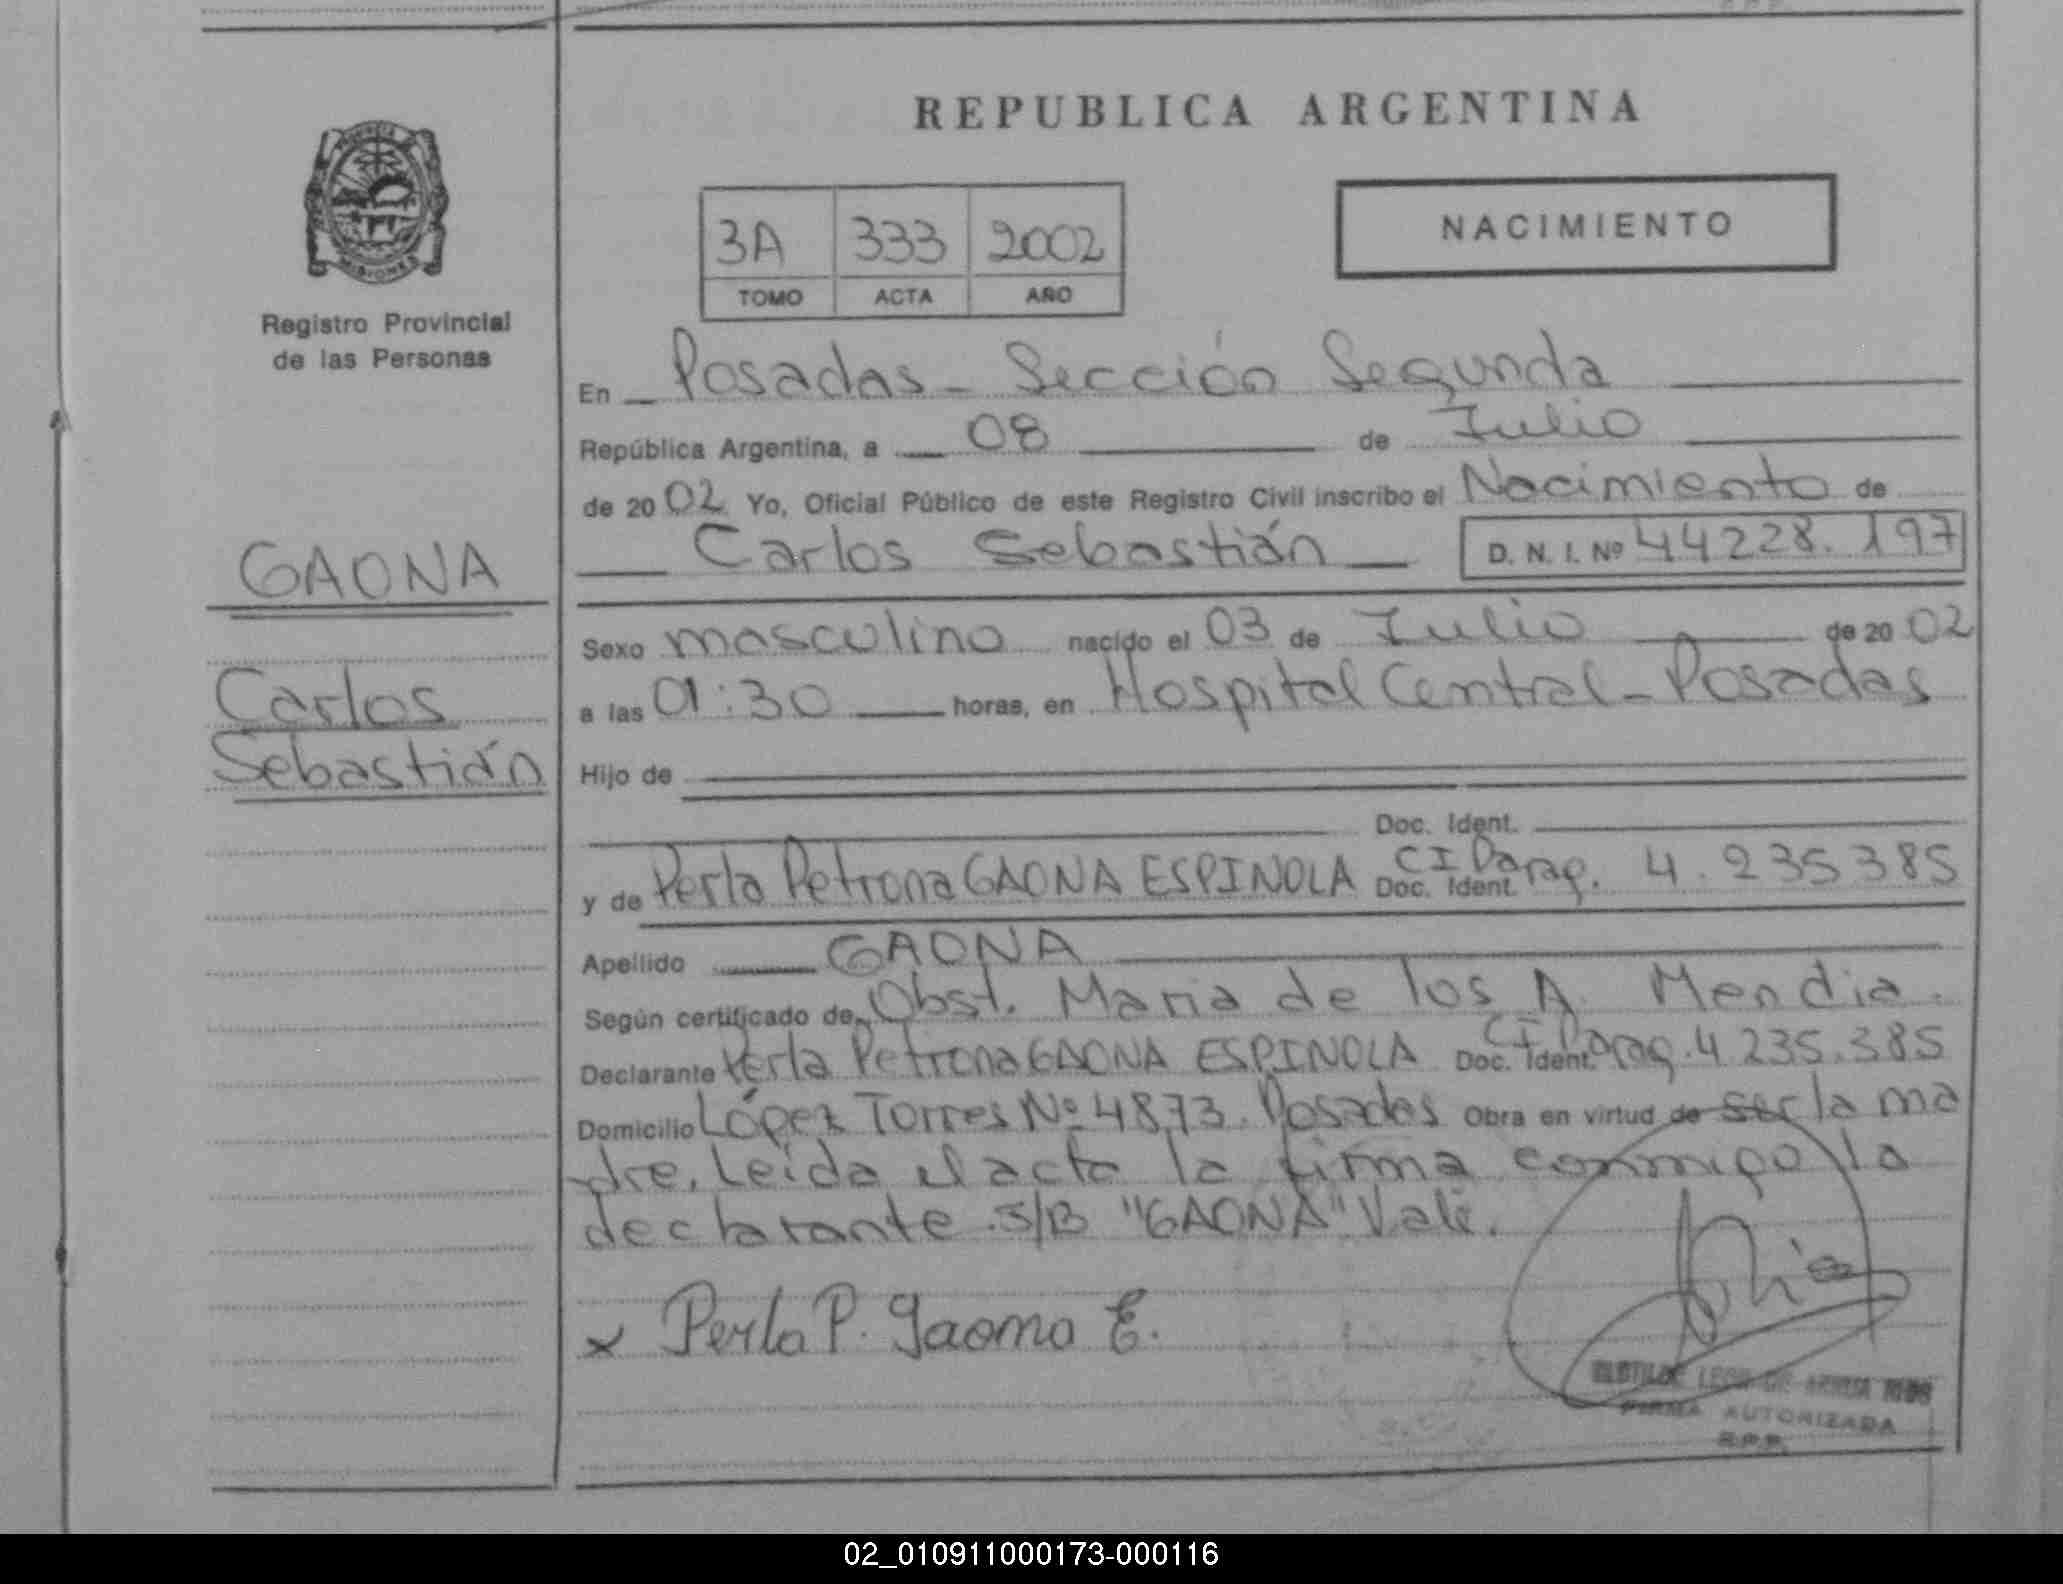 REPUBLICA ARGENTINA
PROVINCIA DE
MISIONES
Registro Provincial
de las Personas
3A 333 2002
TOMO ACTA AÑO
NACIMIENTO
En Posadas - Sección Segunda
República Argentina, a 08 de Julio
de 2002 Yo, Oficial Público de este Registro Civil inscribo el Nacimiento de
Carlos Sebastián D. N. I. Nº 44228.197
GAONA
Carlos
Sebastián
Sexo masculino nacido el 03 de Julio de 2002
a las 01:30 horas, en Hospital Central - Posadas
Hijo de
Doc. Ident.
y de Perla Petrona GAONA ESPINOLA Doc. Ident. CI Parag. 4.235385
Apellido GAONA
Según certificado de Obst. Maria de los A. Mendia.
Declarante Perla Petrona GAONA ESPINOLA Doc. Ident. CI Parag. 4.235.385
Domicilio López Torres Nº 4873. Posadas Obra en virtud de ser la ma
dre. Leída el acta la firma conmigo la
declarante. S/B "GAONA" Vale.
x Perla P. Gaona E.
FIRMA AUTORIZADA
R.P.P.
02_010911000173-000116